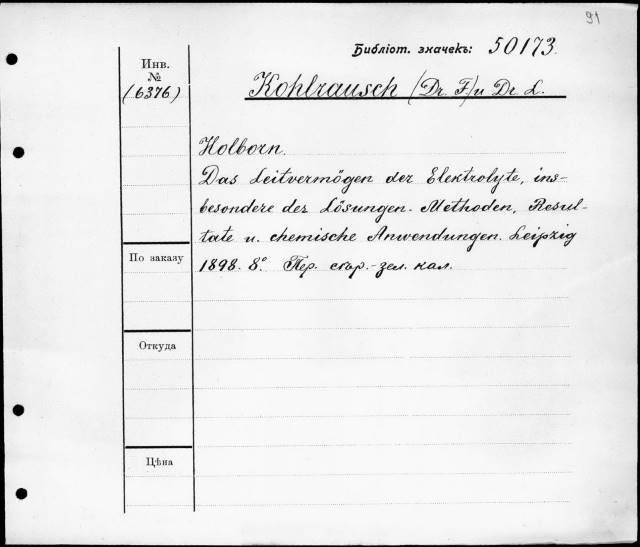 91
Библіот. значекъ: 50173.
Инв.
№
(6376)
Kohlrausch (Dr. F.) u Dr. L.
Holborn.
Das Leitvermögen der Elektrolyte, ins-
besondere der Lösungen. Methoden, Resul-
tate u. chemische Anwendungen. Leipzig
1898. 8°. Пер. скор.-зел. кал.
По заказу
Откуда
Цѣна